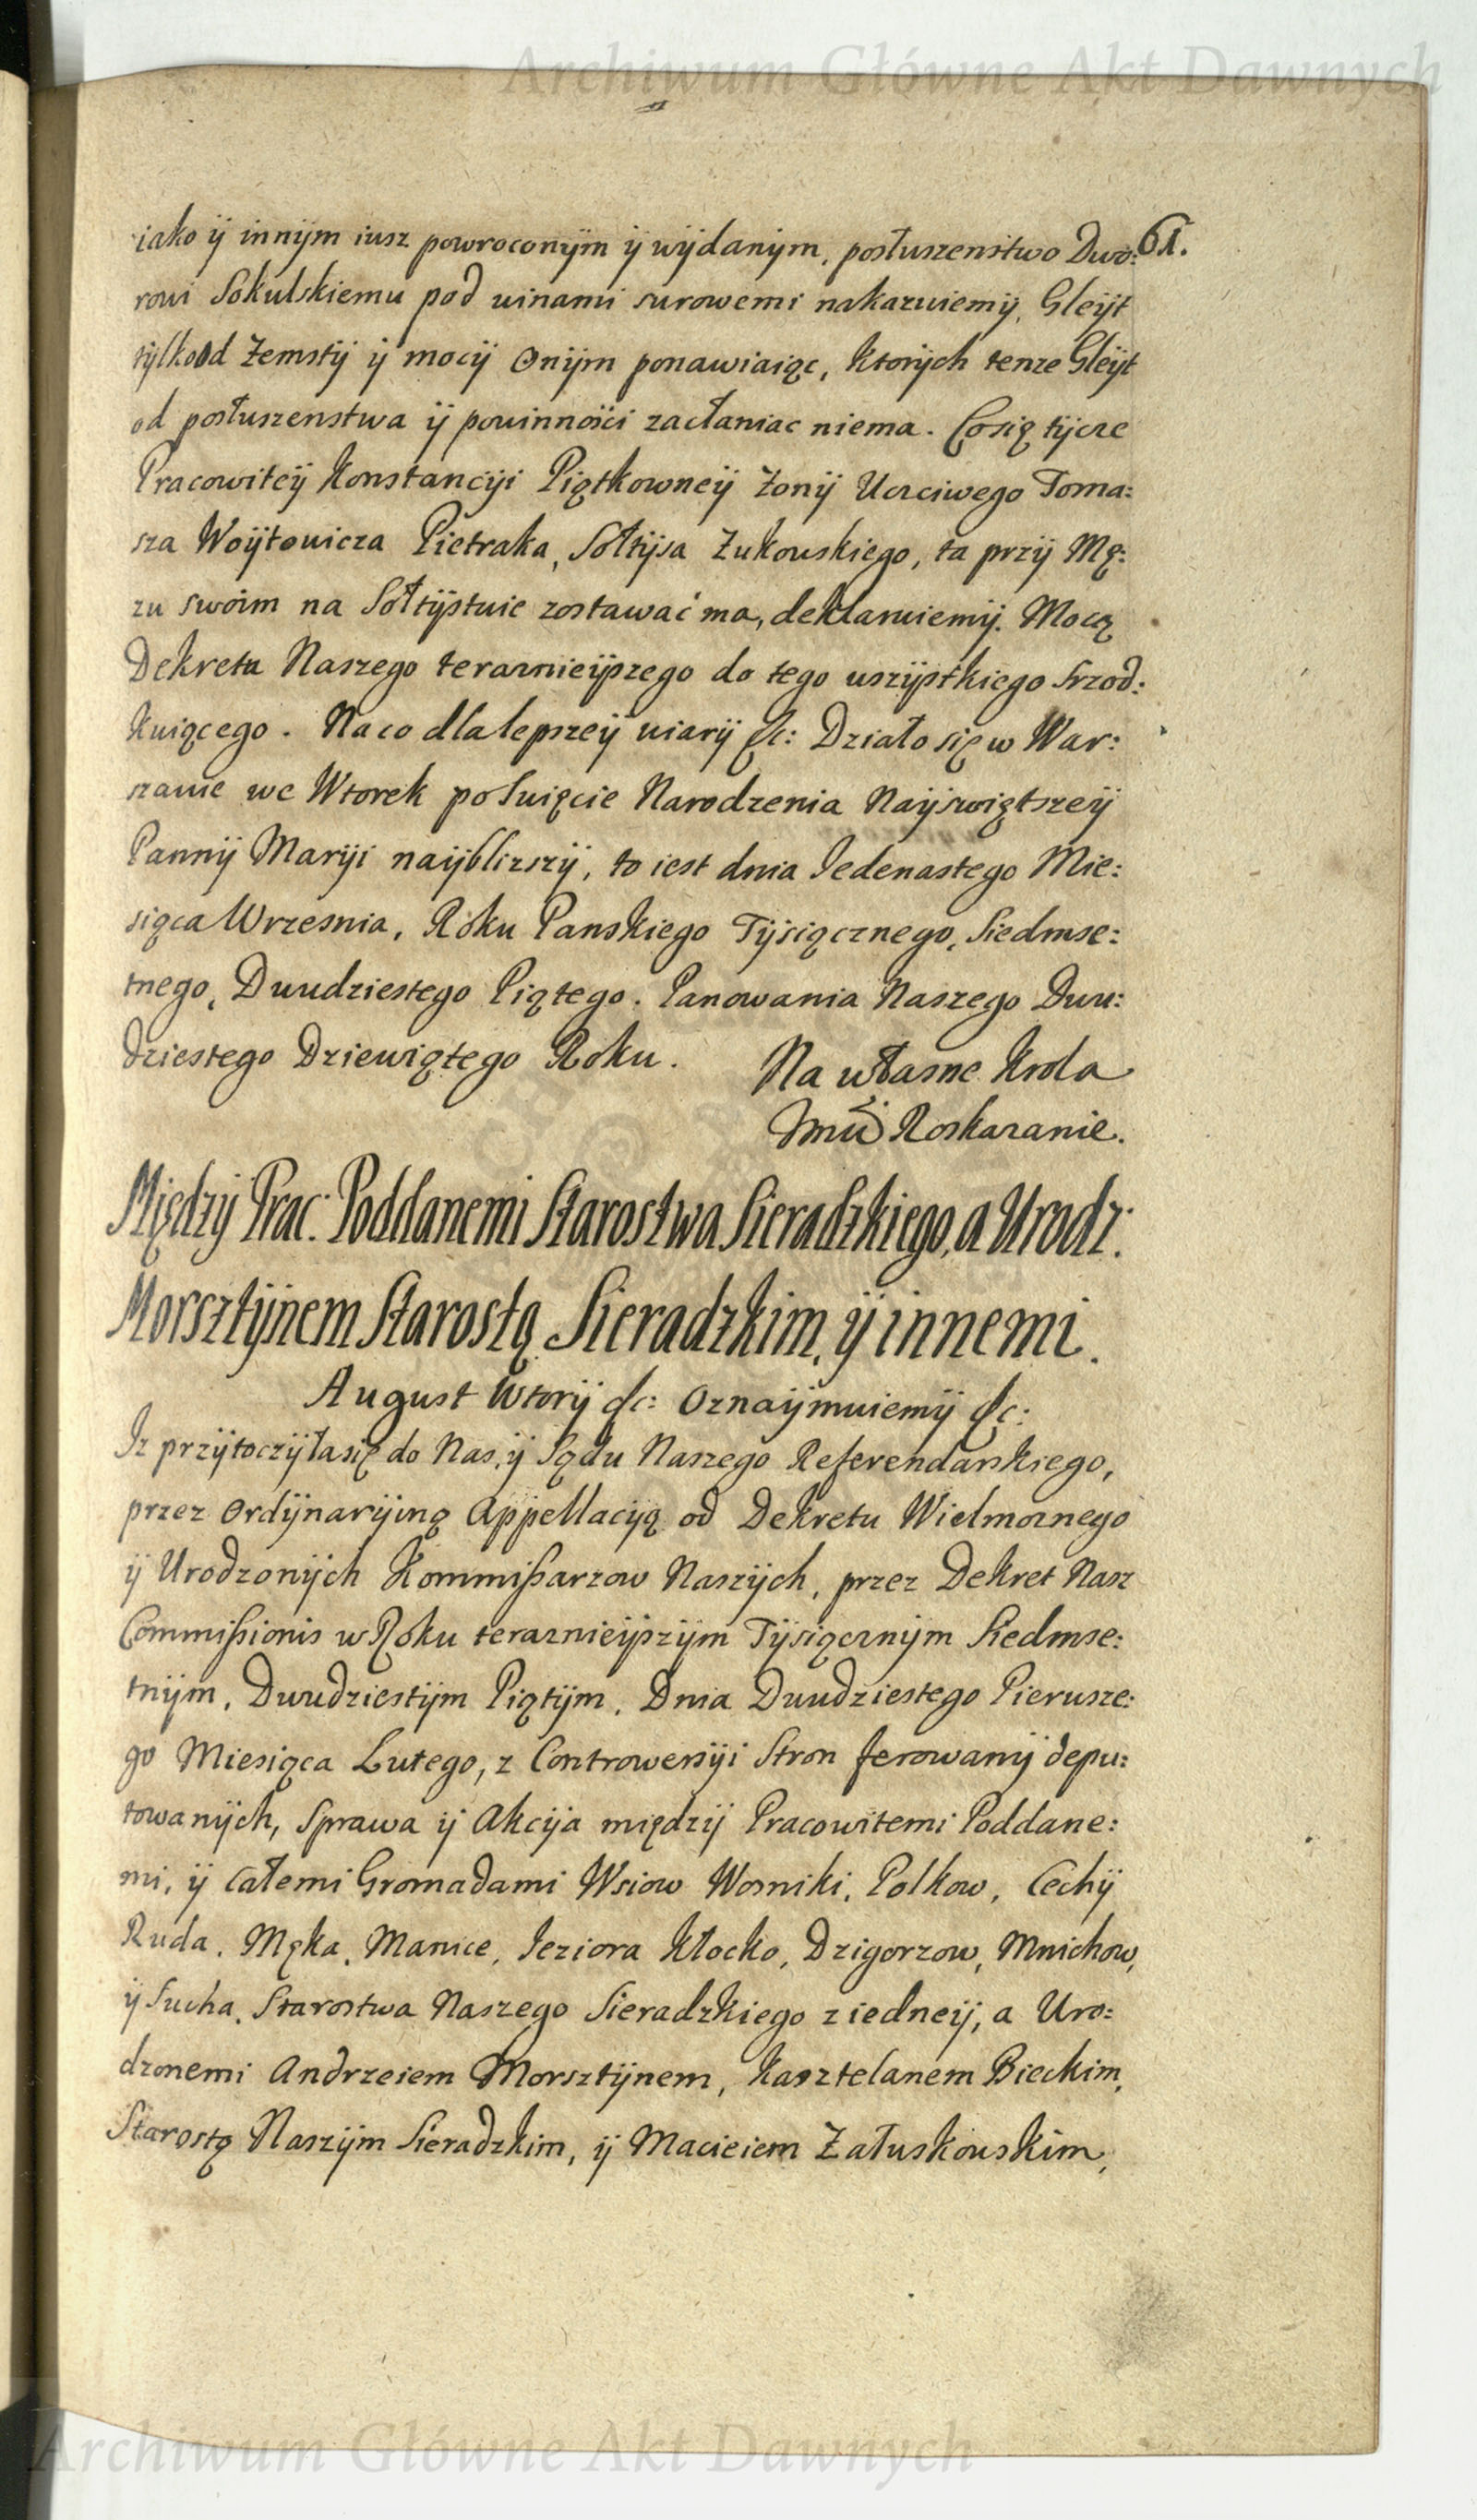 Archiwum Główne Akt Dawnych
61.
iako ÿ innÿm iusz powroconÿm ÿ wÿdanÿm, posłuszenstwo Dwo:
rowi Sokulskiemu pod winami surowemi nakazuiemÿ, Gleÿt
tÿlko od Zemstÿ ÿ mocÿ onÿm ponawiaiąc, ktorÿch tenze Gleÿt
od posłuszenstwa ÿ powinnosci zasłaniac niema. Co się tÿcze
Pracowiteÿ Konstancÿi Piątkowneÿ Zonÿ Uczciwego Toma:
sza Woÿtowicza Pietraka, Sołtÿsa Zukowskiego, ta przÿ Mę:
zu swoim na Sołtÿstwie zostawać ma, deklaruiemÿ. Mocą
Dekretu Naszego teraznieÿszego do tego wszÿstkiego srzod:
kuiącego. Na co dla lepszeÿ wiarÿ &c: Działo się w War:
szawie we Wtorek po Swięcie Narodzenia Naÿswiętszeÿ
Pannÿ Marÿi naÿblizszÿ, to iest dnia Iedenastego Mie:
siąca Wrzesnia, Roku Panskiego Tÿsiącznego, Siedmse:
tnego, Dwudziestego Piątego. Panowania Naszego Dwu:
dziestego Dziewiątego Roku. Na własne Krola
Imći Roskazanie.
Międzÿ Prac: Poddanemi Starostwa Sieradzkiego, a Urodz:
Morsztÿnem Starostą Sieradzkim, ÿ innemi.
August Wtorÿ &c: Oznaÿmuiemÿ &c:
Iz przÿtoczÿła się do Nas, ÿ Sądu Naszego Referendarskiego,
przez Ordÿnarÿiną Appellacÿą od Dekretu Wielmoznego
ÿ Urodzonÿch Kommißarzow Naszÿch, przez Dekret Nasz
Commißionis w Roku teraznieÿszÿm Tÿsiącznÿm Siedmse:
tnÿm, Dwudziestÿm Piątÿm, Dnia Dwudziestego Pierwsze:
go Miesiąca Lutego, z Controwersÿi Stron ferowanÿ depu:
towanÿch, Sprawa ÿ Akcÿa międzÿ Pracowitemi Poddane:
mi, ÿ Całemi Gromadami Wsiow Wozniki, Polkow, Cechÿ
Ruda, Męka, Manice, Ieziora Kłocko, Dzigorzow, Mnichow,
ÿ Sucha, Starostwa Naszego Sieradzkiego z iedneÿ, a Uro:
dzonemi Andrzeiem Morsztÿnem, Kasztelanem Bieckim,
Starostą Naszÿm Sieradzkim, ÿ Macieiem Załuskowskim,
Archiwum Główne Akt Dawnych